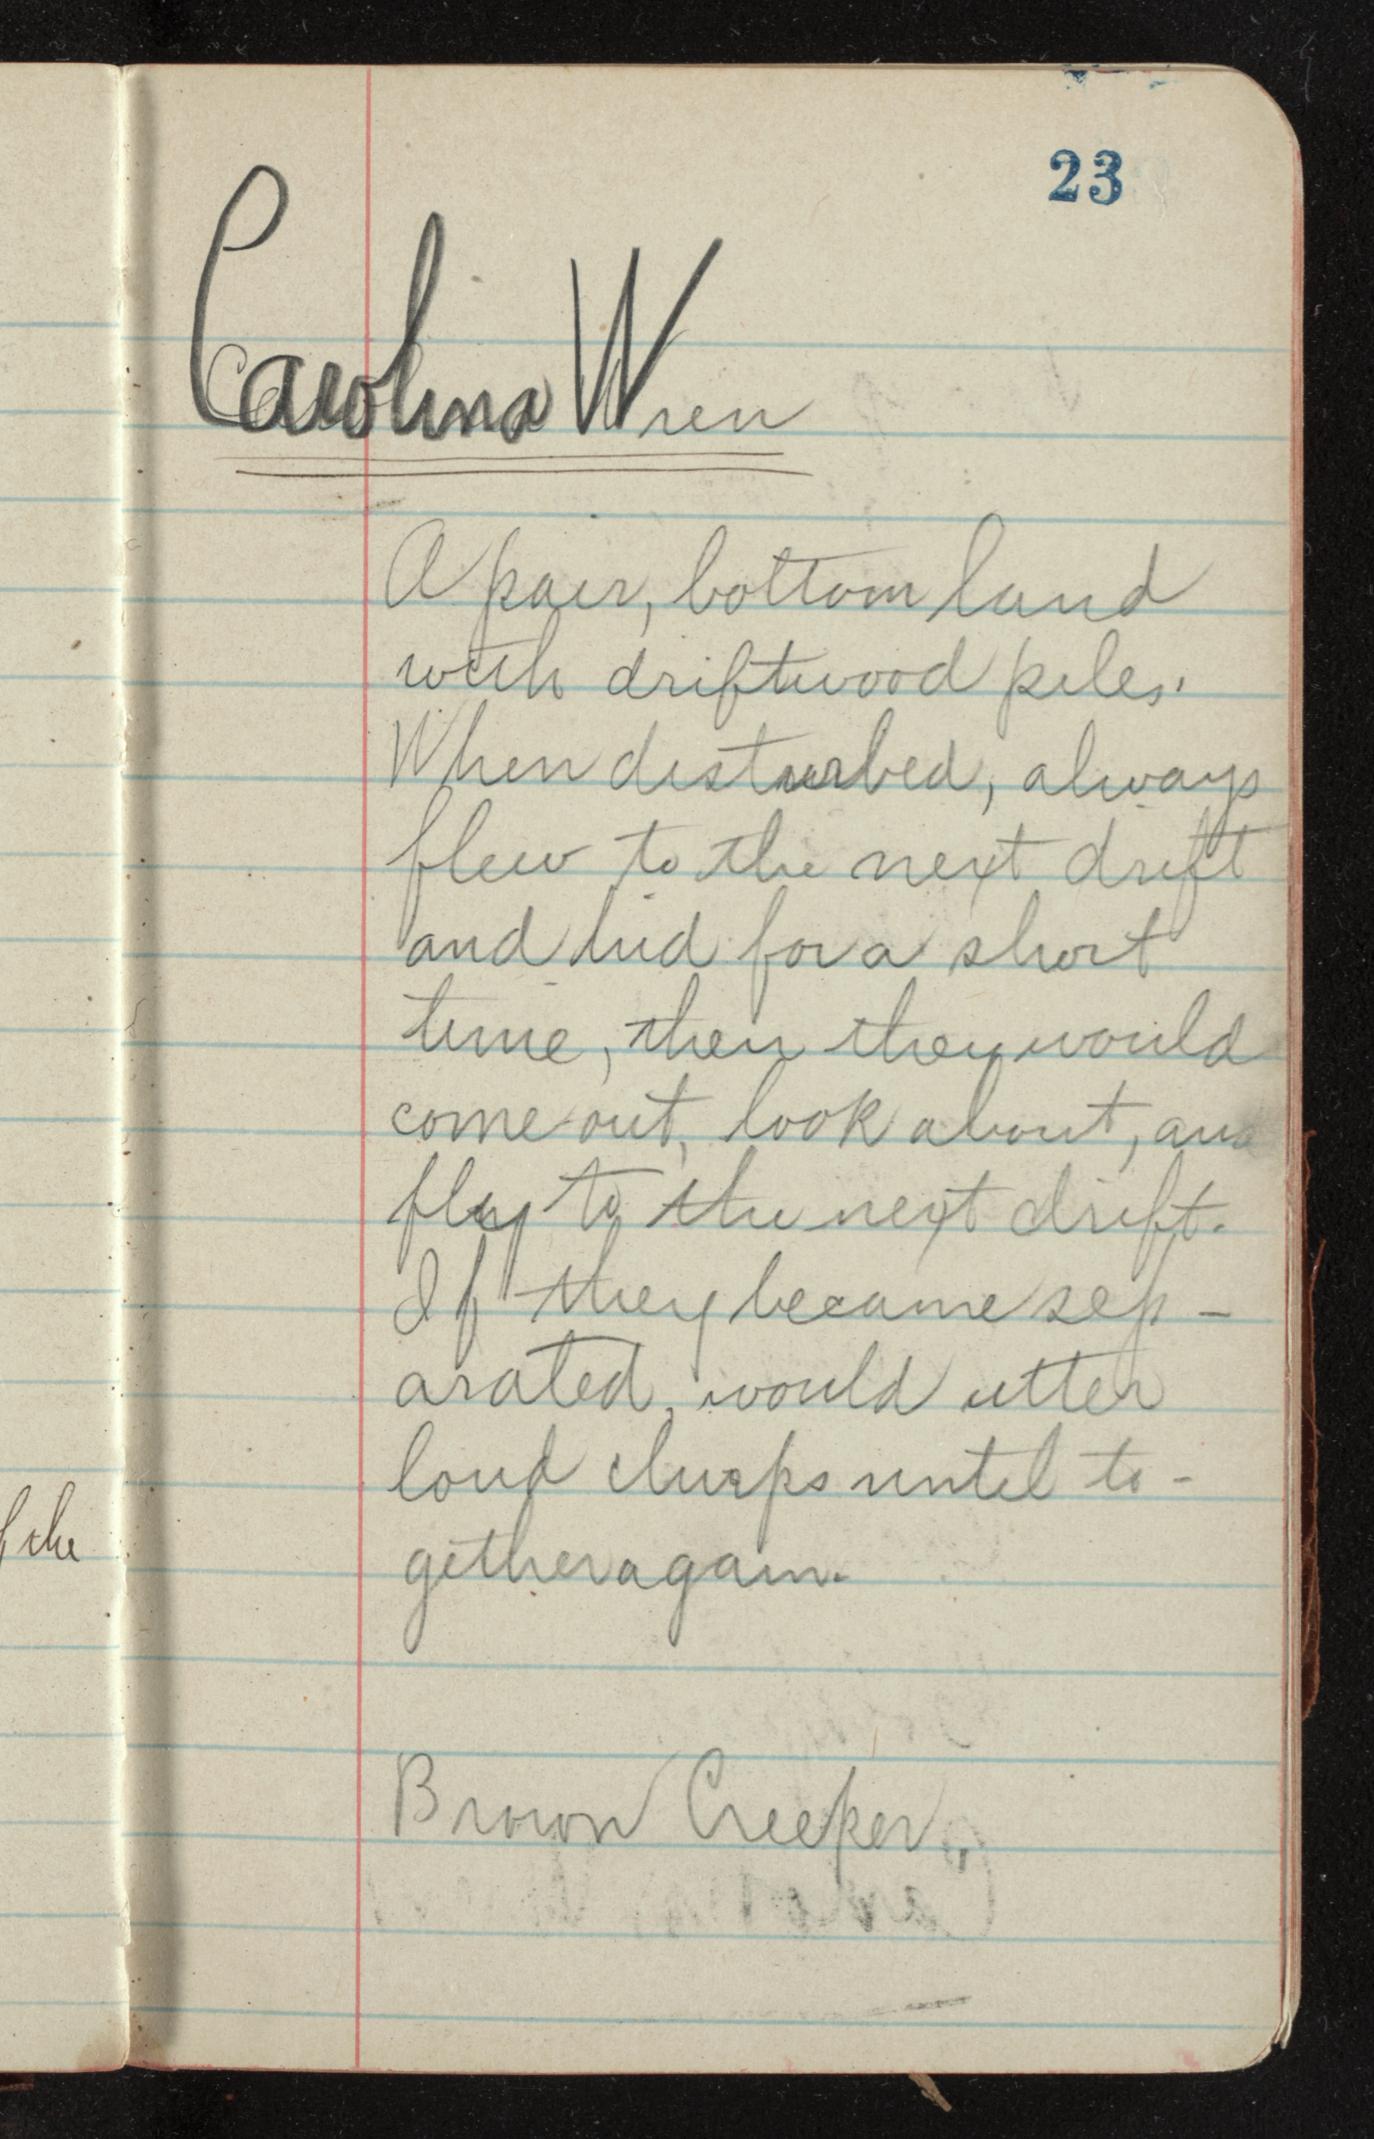 23
Carolina Wren
A pair, bottom land
with driftwood piles.
When disturbed, always
flew to the next drift
and hid for a short
time, then they would
come out, look about, and
fly to the next drift.
If they became sep-
arated, would utter
loud chirps until to-
gether again.
the
Brown Creeper.